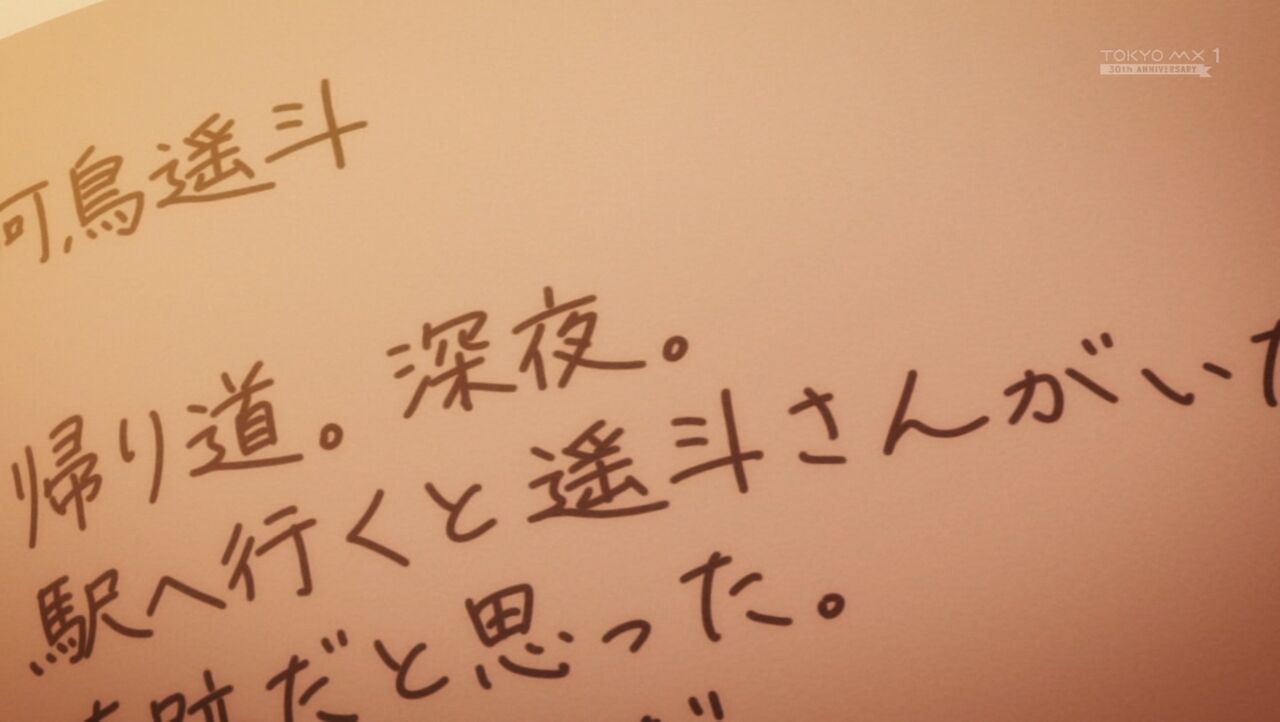 TOKYO MX 1
30th ANNIVERSARY
鳥遥斗
帰り道。深夜。
駅へ行くと遥斗さんがいた
跡だと思った。